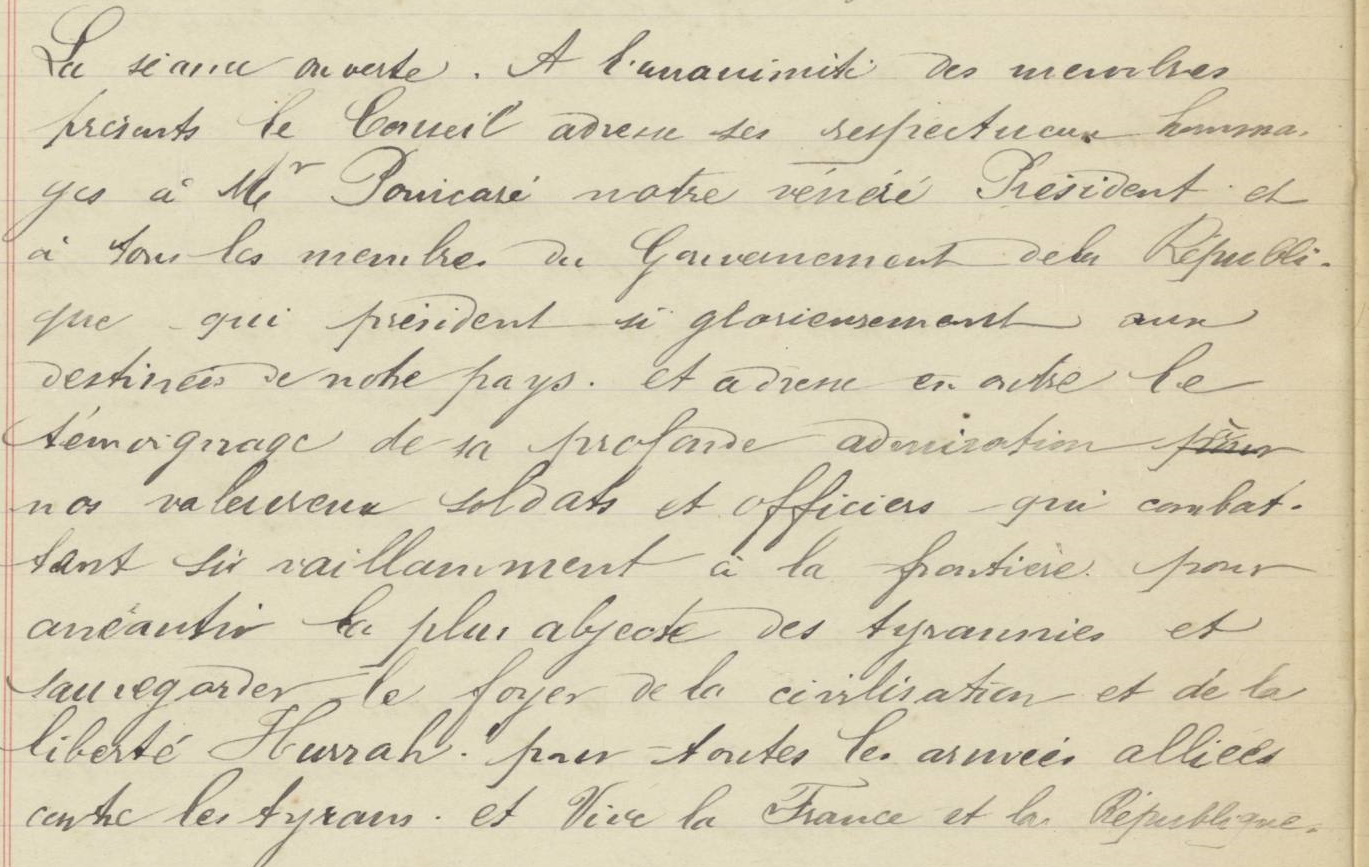 La séance ouverte. A l'unanimité des membres
présents le Conseil adresse ses respectueux homma-
ges à Mr Poincaré notre vénéré Président et
à tous les membres du Gouvernement dela Républi-
que qui président si glorieusement aux
destinées de notre pays. et adresse en outre le
témoignage de sa profonde admiration pour
nos valeureux soldats et officiers qui combat-
tant si vaillamment à la frontière pour
anéantir la plus abjecte des tyrannies et
sauvegarder le foyer de la civilisation et de la
liberté Hurrah. pour toutes les armées alliées
contre les tyrans. et Vive la France et la République.